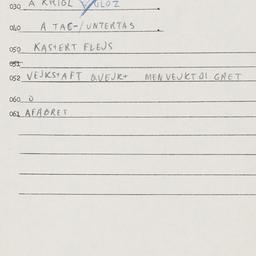 030 A KRIGL GLOZ
040 A TAC-/UNTERTAS
050 KASTERT FLEJS
051
052 VEJKSTAFT QVEJK+ MEN VEJKT DI GRET
060 O
061 AFABRET